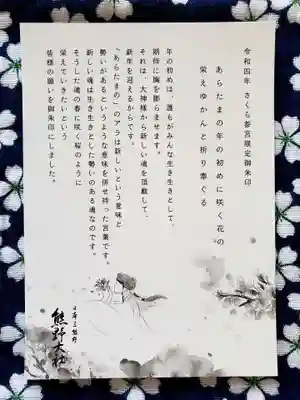 令和四年 さくら参宮限定御朱印
あらたまの年の初めに咲く花の
栄えゆかんと祈り奉ぐる
年の初めは、誰もがみんな生き生きとして、
期待に胸を膨らませます。
それは、大神様から新しい魂を頂戴して、
新年を迎えるからです。
「あらたまの」のアラは新しいという意味と
勢いがあるというような意味を併せ持った言葉です。
新しい魂は生き生きとした勢いのある魂なのです。
そうした魂の春に咲く桜のように
栄えていきたいという
皆様の願いを御朱印にしました。
日本三熊野
熊野大社